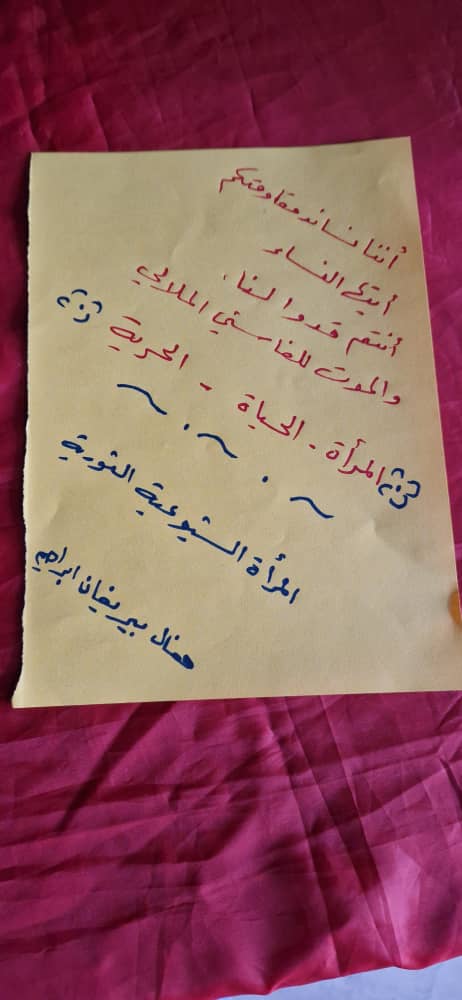 أننا نساند مقاومتكم
أيتها النساء
أنتم قدوا لنا،
والموت للفاستي الملالي
المرأة - الحياة - الحرية
المرأة الشيوعية الثورية
منال بيريفان ابراهيم